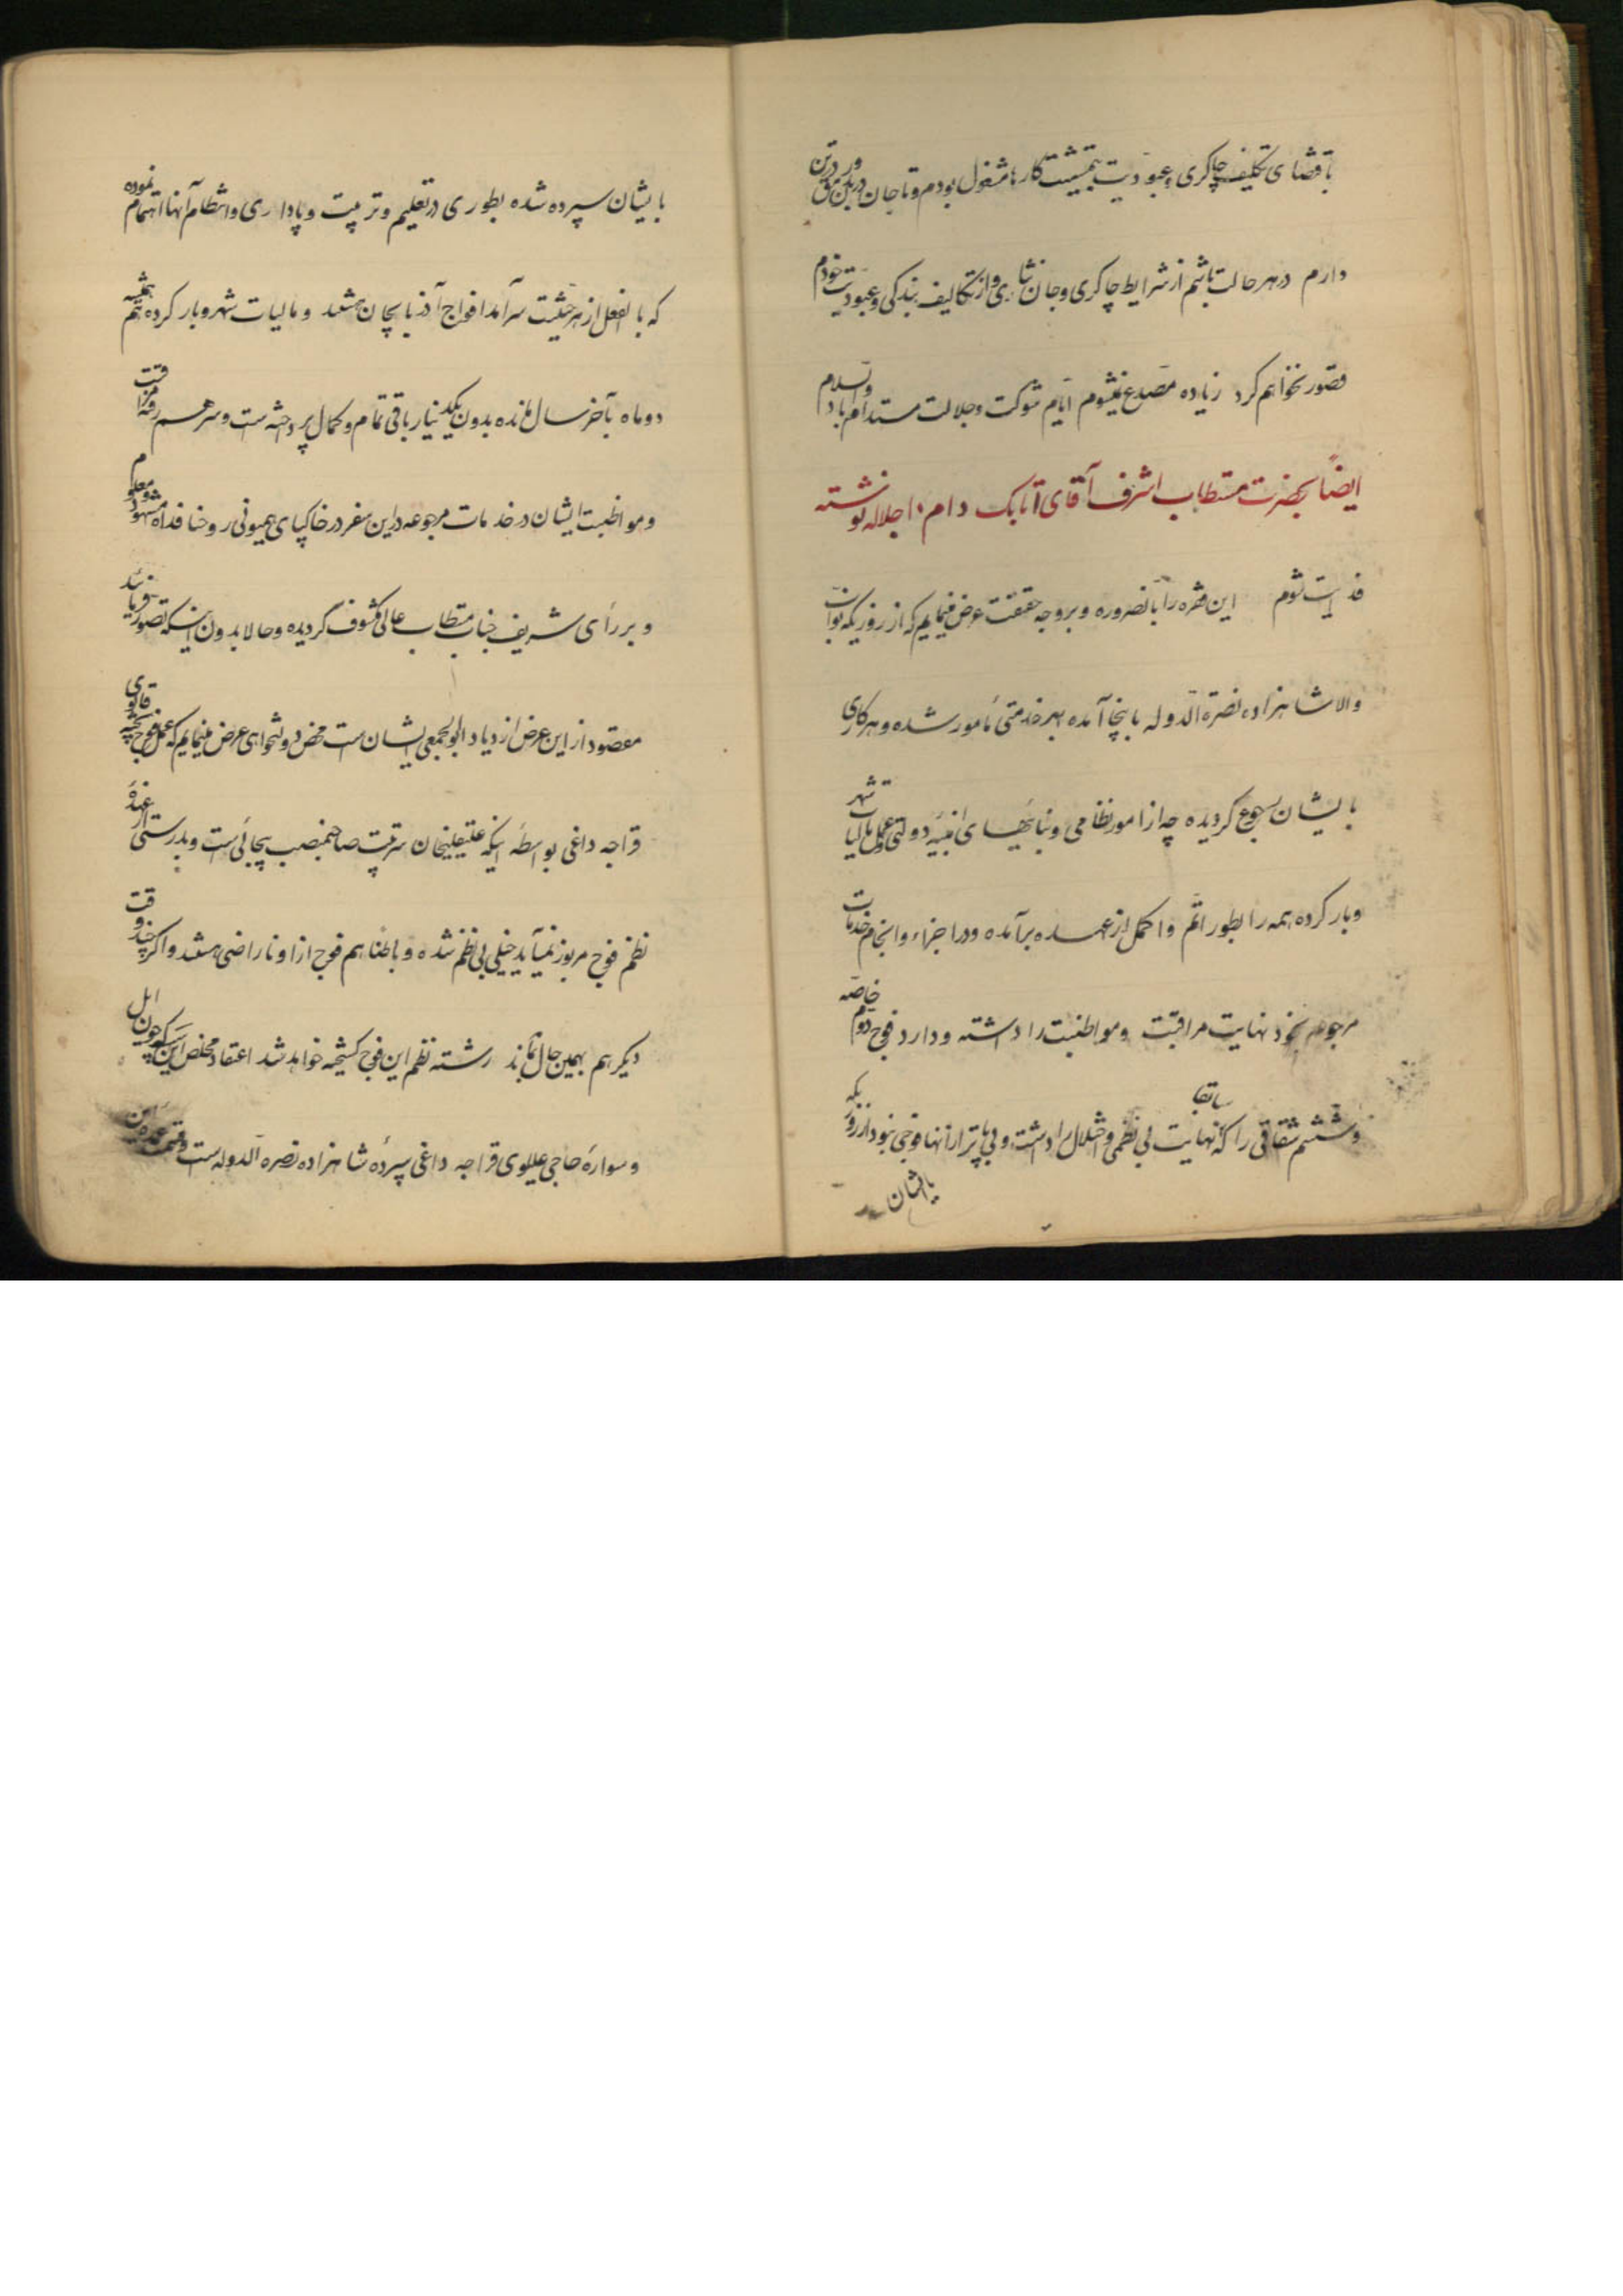 باقتضای تکلیف چاکری و عبودیت بتمشیت کارها مشغول بودم و تا جان در بدن و رمق در تن
دارم در هر حالت باشم از شرایط چاکری و جان نثاری و از تکالیف بندگی و عبودیت خودم
قصور نخواهم کرد زیاده مصدع نمیشوم ایام شوکت و جلالت مستدام باد والسلام
ایضاً بحضرت مستطاب اشرف آقای اتابک دام اجلاله نوشته
فدایت شوم این فقره را بالضروره و بر وجه حقیقت عرض مینمایم که از روزیکه نواب
والا شاهزاده نصرة الدوله باینجا آمده بهر خدمتی مأمور شده و هر کاری
بایشان رجوع گردیده چه از امور نظامی و بنائیهای ابنیه دولتی و عمل مالیات شهر
و بارکرده همه را بطور اتم و اکمل از عهده برآمده و در اجراء و انجام خدمات
مرجوعه بخود نهایت مراقبت و مواظبت را داشته و دارد فوج دوم خاصه
و ششم شقاقی را که سابقا نهایت بی نظمی و اختلال را داشت و بی پاتر از آنها فوجی نبود از روزیکه
بایشان
بایشان سپرده شده بطوری در تعلیم و تربیت و پاداری و انتظام آنها اهتمام نموده
که بالفعل از هر حیثیت سرآمد افواج آذربایجان هستند و مالیات شهر و بارکرده هم همیشه
دو ماه بآخر سال مانده بدون یکدینار باقی تمام و کمال پرداخته است و سر هم رفته مراقبت
و مواظبت ایشان در خدمات مرجوعه در این سفر در خاکپای همیونی روحنا فداه مشهود و معلوم
و بر رأی شریف جناب مستطاب عالی مکشوف گردیده و حالا بدون اینکه تصور فرمایند
مقصود از این عرض ازدیاد ابوابجمعی ایشان است محض دولتخواهی عرض مینمایم که عمل فوج
قراجه داغی بواسطه اینکه علیقلیخان سرتیپ صاحبمنصب بیحالی است و بدرستی از عهدهٔ
نظم فوج مزبور نمیآید خیلی بی نظم شده و باطنا هم فوج از او ناراضی هستند و اگر چندوقت
دیگر هم بهمین حال بماند رشته نظم این فوج گسیخته خواهد شد اعتقاد مخلص این است که چون ایل
و سوارهٔ حاجی علیلوی قراجه داغی سپردهٔ شاهزاده نصره الدوله است و قسمت عمده این